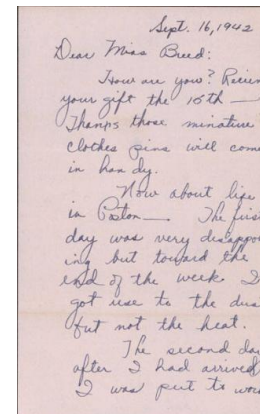 Sept. 16, 1942
Dear Miss Breed:
How are you? Recien
your gift the 15th —
Thanks those minature
clothes pins will come
in handy.
Now about life
in Poston — The firs
day was very disappoi
ing but toward the
end of the week I
got use to the dus
but not the heat.
The second da
after I had arrived
I was put to wor